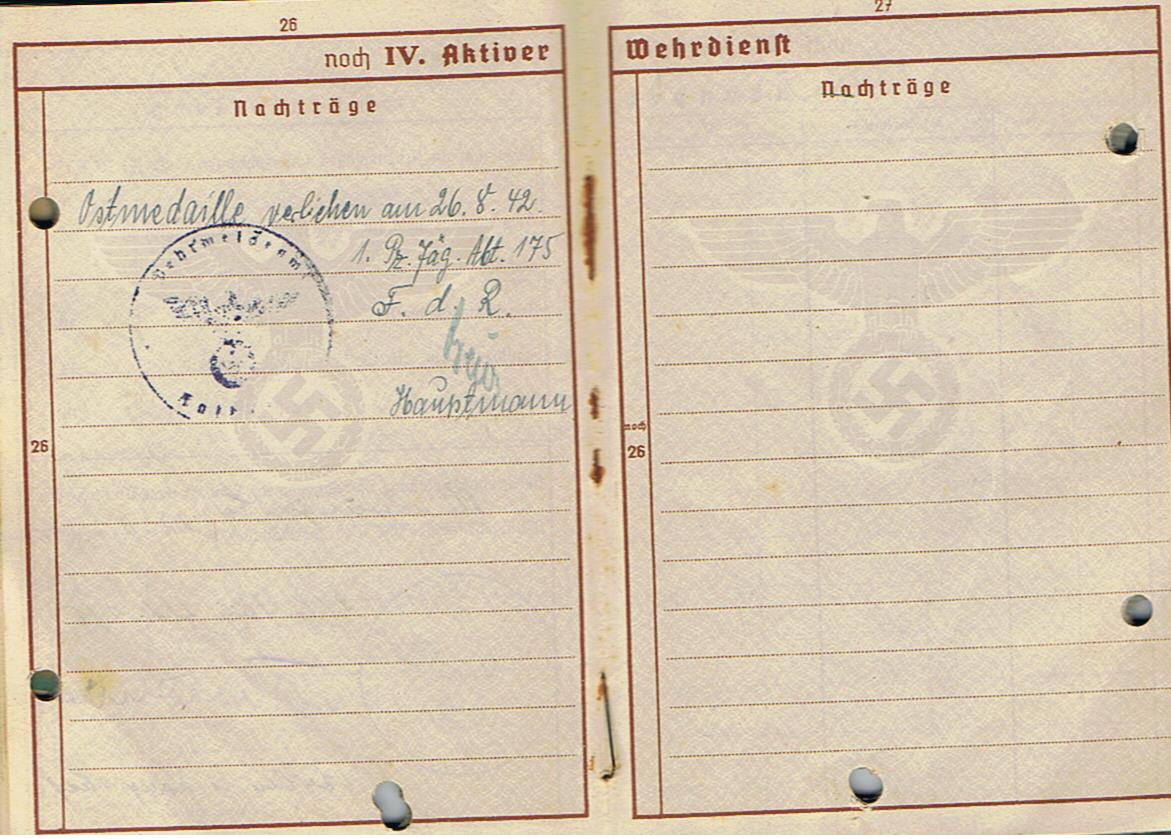 26
noch IV. Aktiver
Nachträge
Ostmedaille verliehen am 26. 8. 42.
1. Pz. Jäg. Abt. 175
F. d. R.
Hauptmann
Wehrmeldeam
26
27
Wehrdienst
Nachträge
noch
26